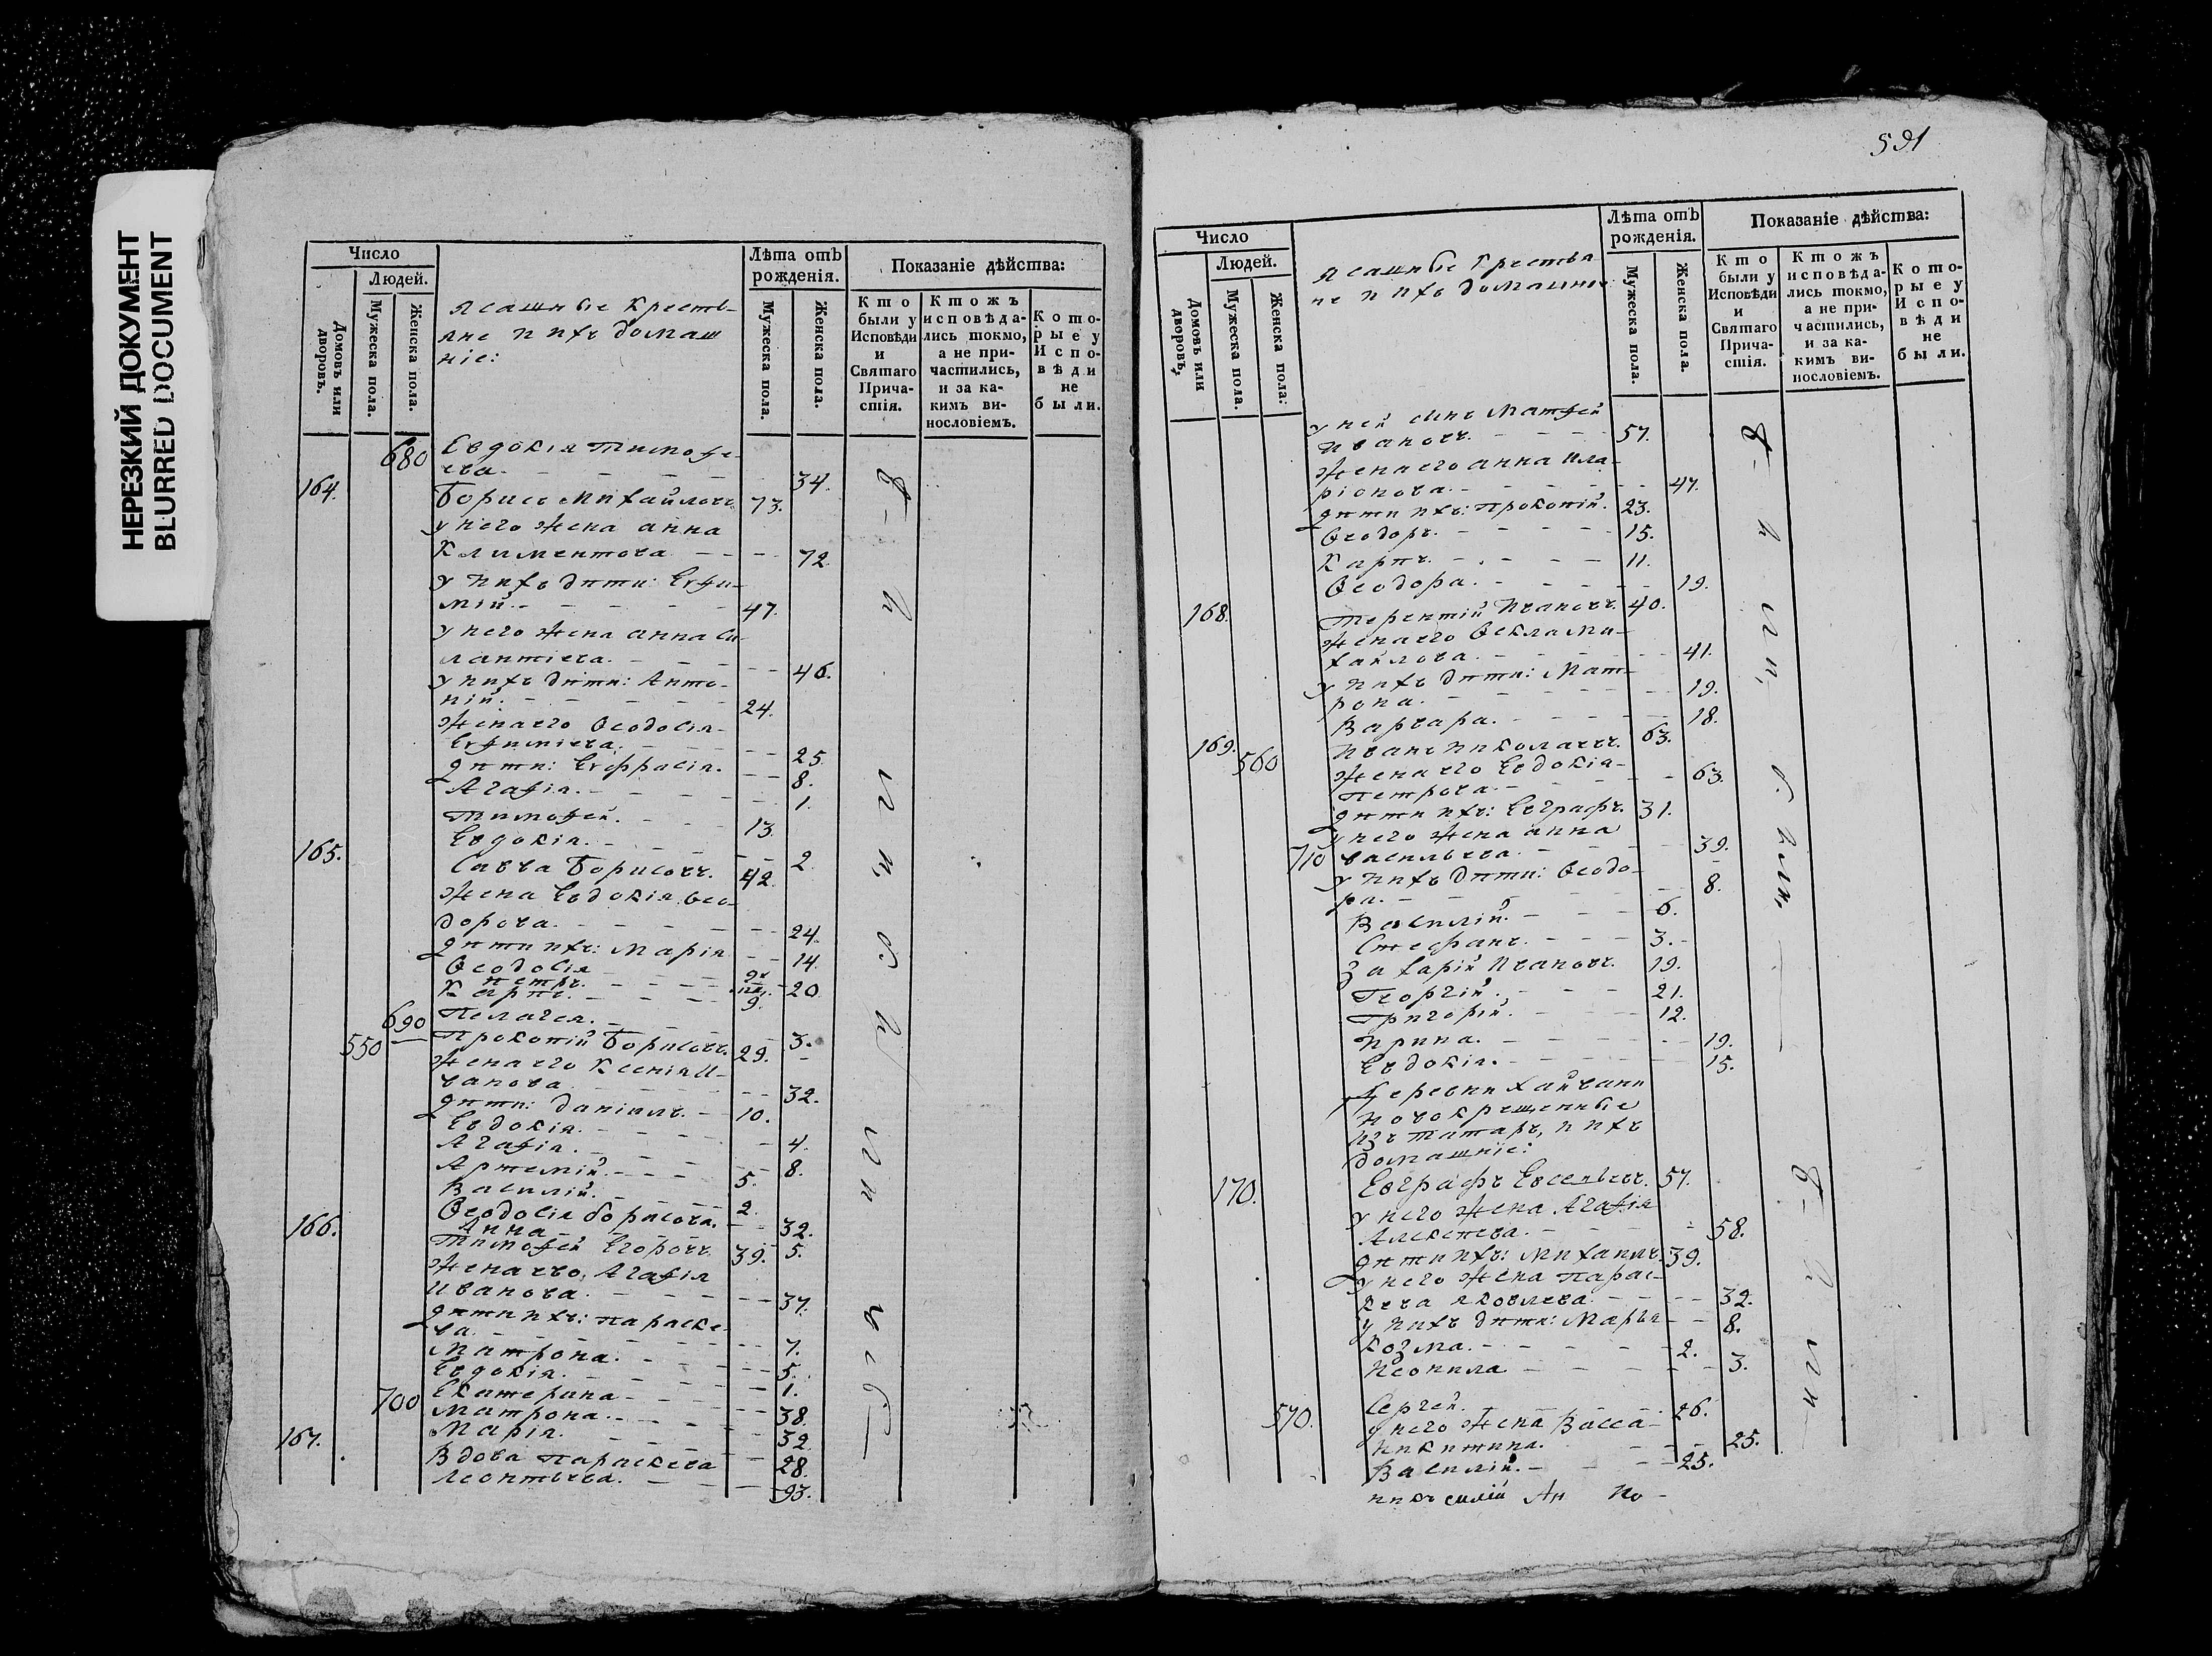 НЕРЕЗКИЙ ДОКУМЕНТ
BLURRED DOCUMENT
Число
Людей.
Домовъ или дворовъ.
Мужеска пола.
Женска пола.
Ясашные кресть-
яне и ихъ домаш
ніе:
Лѣта отъ рожденія.
Мужеска пола.
Женска пола.
Показаніе дѣйства:
Кто были у Исповѣди и Святаго Причастія.
Ктожъ исповѣдались токмо, а не причастились, и за какимъ винословіемъ.
Которые у Исповѣди не были.
680 Евдокія Тимофе-
ева. 34.
164. Борисъ Михайловъ 73.
у него жена Анна
Климентова 72.
у нихъ дѣти: Евфи-
мій. 47.
у него жена Анна Си-
лантіева. 46.
у нихъ дѣти: Анто-
ній. 24.
жена его Ѳеодосія
Евфиміева. 25.
дѣти: Евфросія. 8.
Агафія. 1.
Тимофей. 13.
Евдокія. 2.
165. Савва Борисовъ. 42.
жена Евдокія Ѳео-
дорова. 24.
дѣти ихъ: Марія 14.
Ѳеодосія 20
Петръ.
Карпъ. 9.
690 Пелагея. 3.
550 Прокопій Борисовъ. 29.
жена его Ксенія И-
ванова 32.
дѣти: Даніилъ. 10.
Евдокія. 4.
Агафія. 8.
Артемій. 5.
Василій. 2.
Ѳеодосія Борисова. 32.
Анна 5.
166. Тимофей Егоровъ 39.
жена его Агафія
Иванова. 37.
дѣти ихъ: Параске-
ва. 7.
Матрона. 5.
Евдокія. 1.
700 Екатерина 38.
Матрона. 32.
Марія. 28.
167. Вдова Параскева
Леонтьева. 93.
591
Число
Людей.
Домовъ или дворовъ.
Мужеска пола.
Женска пола:
Ясашные крестья
не и ихъ домашніе
Лѣта отъ рожденія.
Мужеска пола.
Женска пола.
Показаніе дѣйства:
Кто были у Исповѣди и Святаго Причастія.
Ктожъ исповѣдались токмо, а не причастились, и за какимъ винословіемъ.
Которые у Исповѣди не были.
у ней сынъ Матфей
Ивановъ. 57.
жена его Анна Ила-
ріонова. 47.
дѣти ихъ: Прокопій. 23.
Ѳеодоръ. 15.
Карпъ. 11.
Ѳеодора. 19.
168. Терентій Ивановъ. 40.
жена его Ѳекла Ми-
хайлова. 41.
у нихъ дѣти: Мат-
рона. 19.
Варвара. 18.
169. 560 Иванъ Николаевъ. 63.
жена его Евдокія
Петрова. 63.
дѣти ихъ: Евграфъ. 31.
у него жена Анна
710 Васильева. 39.
у нихъ дѣти: Ѳеодо-
ра. 8.
Василій. 6.
Стефанъ. 3.
Захарій Ивановъ. 19.
Георгій. 21.
Григорій. 12.
Ирина. 19.
Евдокія. 15.
Деревни Хайвани
новокрещенные
изъ татаръ, и ихъ
домашніе:
170. Евграфъ Евсевьевъ. 57.
у него жена Агафія
Алексѣева. 58.
дѣти ихъ: Михаилъ. 39.
у него жена Парас-
кева Яковлева. 32.
у нихъ дѣти: Марья 8.
Козма. 2.
Неонила 3.
570. Сергей. 26.
у него жена Васса
Никитина. 25.
Василій. 25.